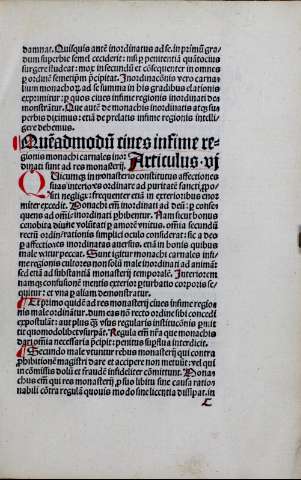 damnat. Quisquis autē inordinatus ad se.in primū gra-
dum superbie semel ceciderit: nisi p penitentiā quātocius
surgere studeat: mox in secundū et cōsequenter in omnes
y ordinē semetipm p̄cipitat. Inordinaciōnis vero carna-
lium monachorū ad se summa in his gradibus elationis
exprimitur: p quos ciues infime regionis inordinati de-
monstrātur. Que autē de monachis inordinatis atqꝫ su-
perbis diximus: etiā de prelatis infime regionis intelli-
gere debemus.
Quēadmodū ciues infime re-
gionis monachi carnales inor Articulus.vj
dinati sunt ad res monasterij.
QUicūmqꝫ in monasterio constitutus affectiones
suas interiores ordinare ad puritatē sancti p̱posi-
ti negligit: frequenter etiā in exterioribus enor-
miter excedit. Monachi em̄ inordinati ad deū: p conse-
quens ad om̄ia inordinati phibentur. Nam sicut bonus
cenobita diuine volūtati p amorē vnitus. om̄ia secundū
rectū ordinationis simplici oculo considerat: sic a deo
p affectiones inordinatas auersus. etiā in bonis quibus
male vtitur peccat. Sunt igitur monachi carnales infi-
me regionis cultores non solū male inordinati ad animā:
sed etiā ad substantiā monasterij temporalē. Interiorem
namqꝫ confusionē mentis exterior pturbatio corporis se-
quitur: et vna p aliam demonstratur.
Et primo quidē ad res monasterij ciues infime regio-
nis male ordinātur. dum eas nō recto ordine sibi concedi
expostulāt: aut plus qꝫ vsus regularis institucōnis pmit-
tit quomodolibet vsurpāt. Regula em̄ nr̄a que monachis
dari om̄ia necessaria p̄cipit: penitus supflua interdicit.
Secundo male vtuntur rebus monasterij qui contra
phibitionē magistri dare et accipere non metuūt: vel qui
in cōmissis dolū et fraudē infideliter cōmittunt. Monas-
chus em̄ qui res monasterij p suo libitu sine causa ratio-
nabili cōtra regulā quouis modo sine licentia dissipat. in
C